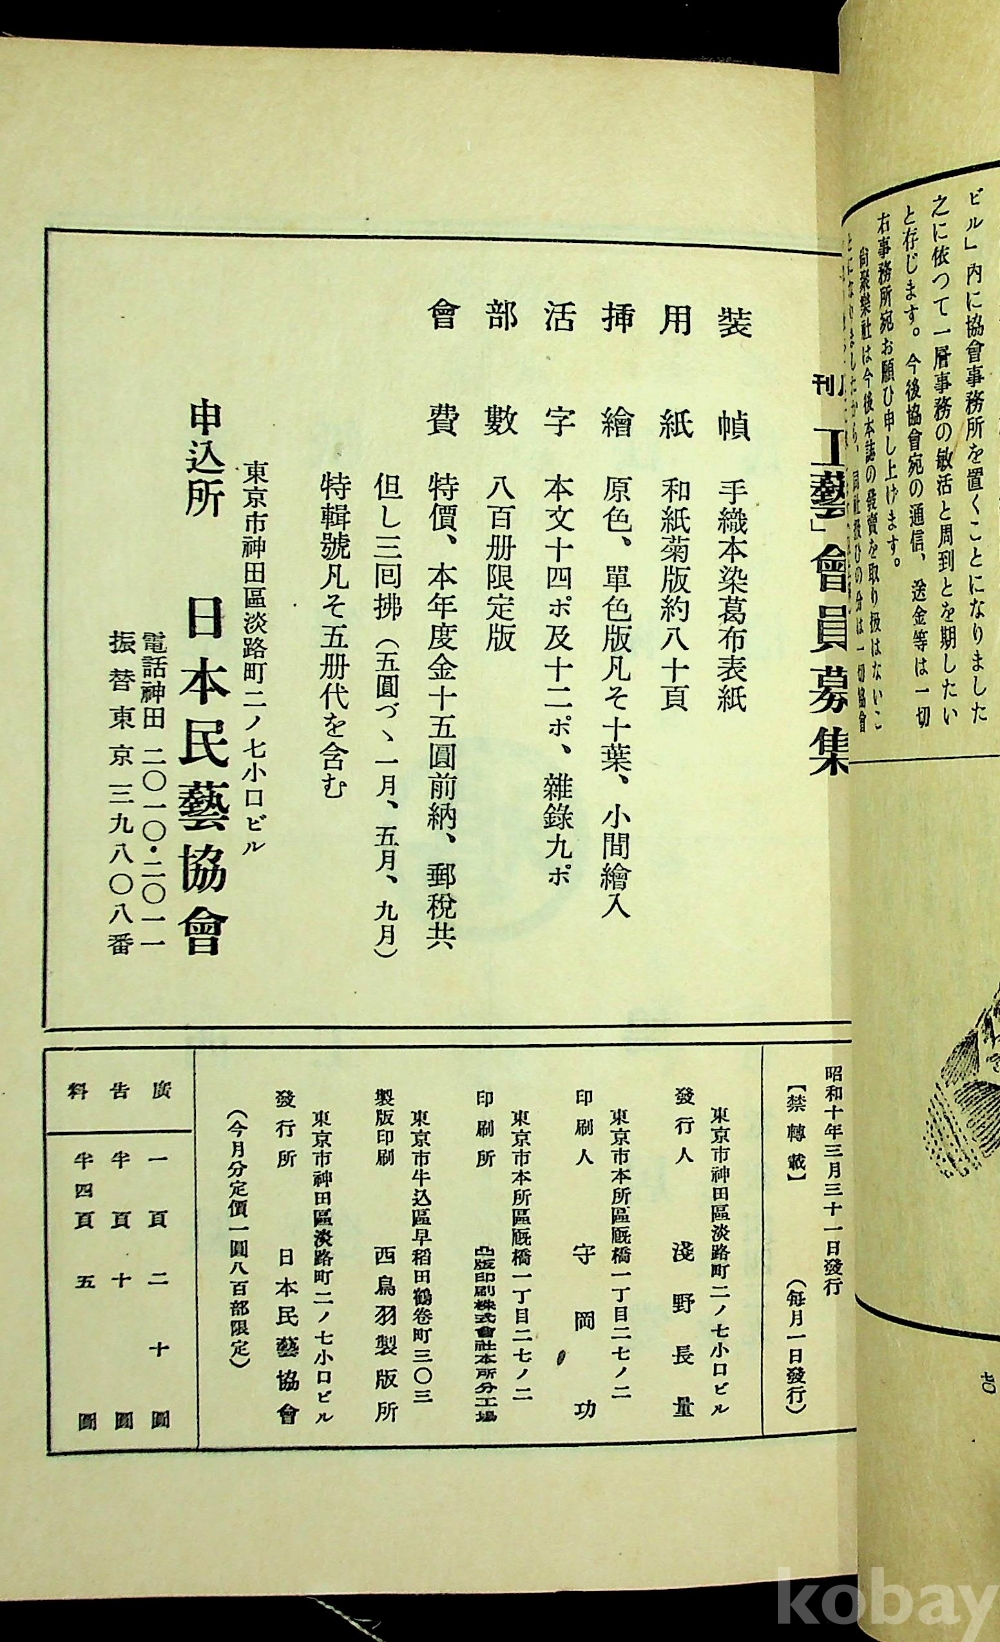 ビル」内に協會事務所を置くことになりました
之に依つて一層事務の敏活と周到とを期したい
と存じます。今後協會宛の通信、送金等は一切
右事務所宛お願ひ申し上げます。
尙聚樂社は今後本誌の發賣を取り扱はないこ
とになりましたから、同社扱ひの分は一切協會
七〇
刊
工藝」會員募集
裝幀 手織本染葛布表紙
用紙 和紙菊版約八十頁
挿繪 原色、單色版凡そ十葉、小間繪入
活字 本文十四ポ及十二ポ、雜錄九ポ
部數 八百册限定版
會費 特價、本年度金十五圓前納、郵稅共
但し三回拂(五圓づヽ一月、五月、九月)
特輯號凡そ五册代を含む
東京市神田區淡路町二ノ七小口ビル
申込所 日本民藝協會
電話神田二〇一〇・二〇一一
振替東京三九八〇八番
昭和十年三月三十一日發行 (每月一日發行)
【禁轉載】
東京市神田區淡路町二ノ七小口ビル
發行人 淺野長量
東京市本所區厩橋一丁目二七ノ二
印刷人 守岡功
東京市本所區厩橋一丁目二七ノ二
印刷所 凸版印刷株式會社本所分工場
東京市牛込區早稻田鶴卷町三〇三
製版印刷 西鳥羽製版所
東京市神田區淡路町二ノ七小口ビル
發行所 日本民藝協會
(今月分定價一圓八百部限定)
廣告料
一頁 二十圓
半頁 十圓
半四頁 五圓
kobay